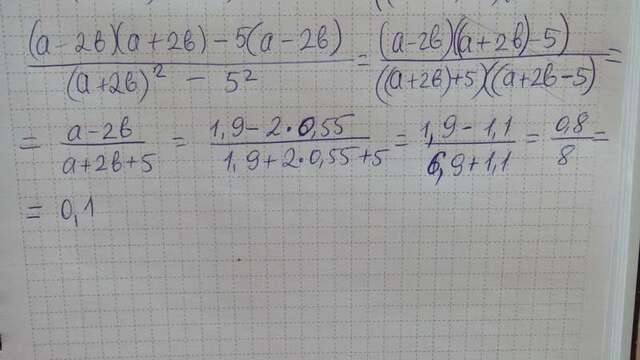 (a-2b)(a+2b)-5(a-2b) / (a+2b)² - 5² = (a-2b)((a+2b)-5) / ((a+2b)+5)((a+2b-5) =
= a-2b / a+2b+5 = 1,9-2•0,55 / 1,9+2•0,55+5 = 1,9-1,1 / 6,9+1,1 = 0,8 / 8 =
= 0,1